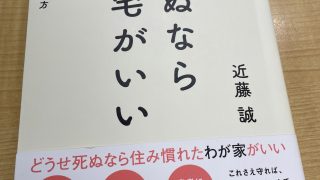 ぬなら
宅がいい
方
近藤 誠
どうせ死ぬなら住み慣れたわが家がいい
これさえ守れば、